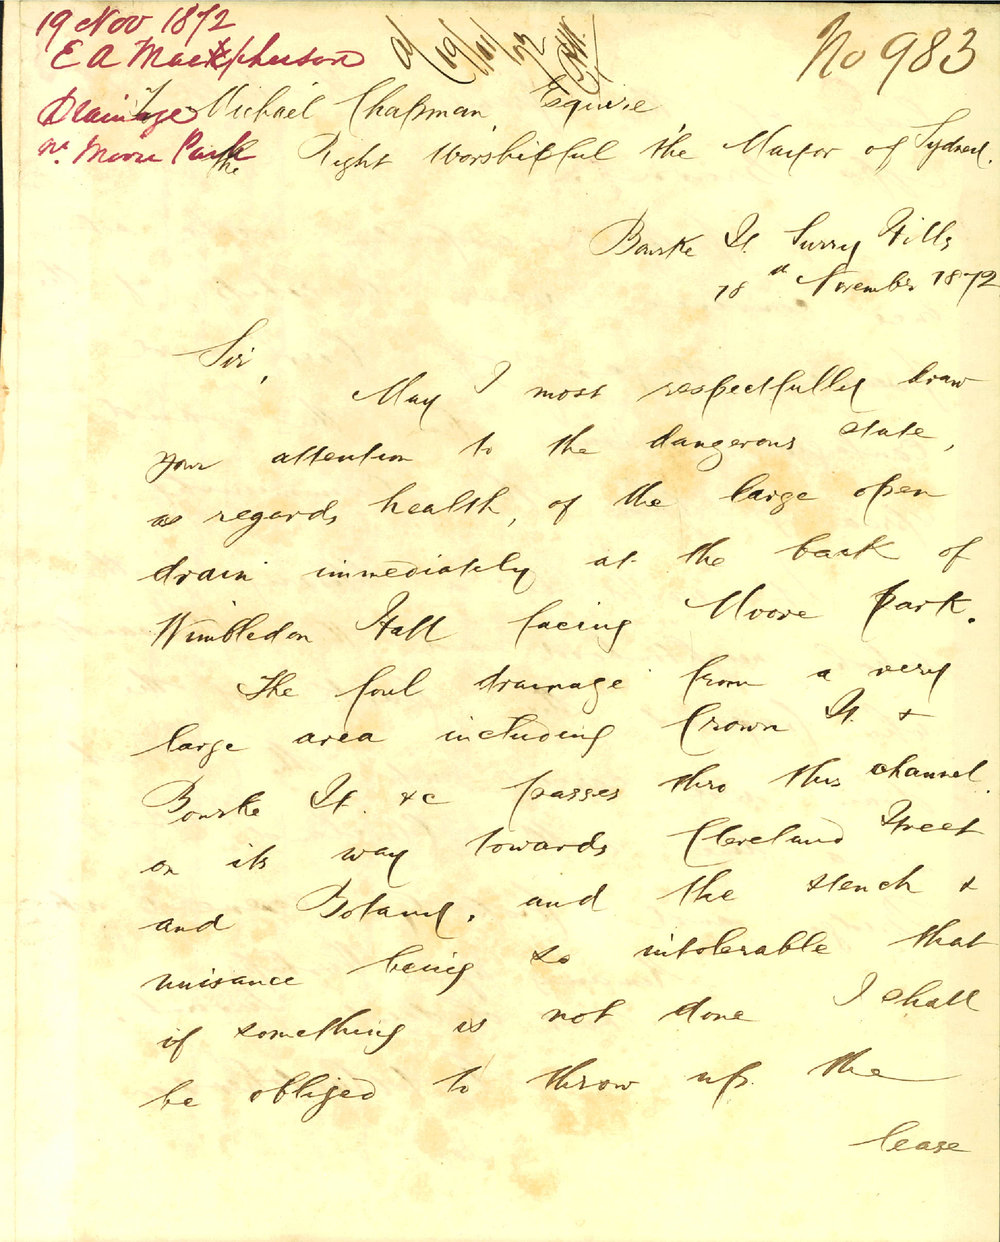 19 Nov 1872
E A MacPherson
Drainage
nr. Moore Park
No 983
To Michael Chapman, Esquire,
The Right Worshipful the Mayor of Sydney.
Bourke St. Surry Hills
18th November 1872
Sir,
May I most respectfully draw
your attention to the dangerous state,
as regards health, of the large open
drain immediately at the back of
Wimbledon Hall facing Moore Park.
The foul drainage from a very
large area including Crown St. &
Bourke St. &c passes thro this channel
on its way towards Cleveland Street
and Botany, and the stench &
nuisance being so intolerable that
if something is not done I shall
be obliged to throw up the
lease